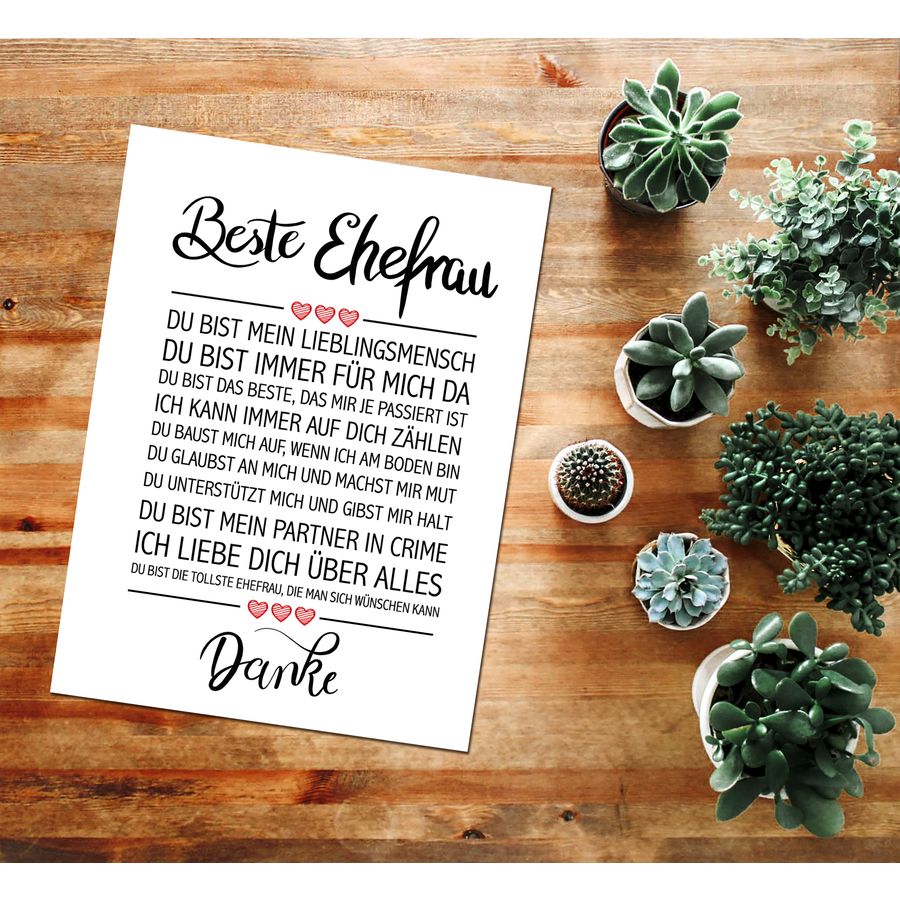 Beste Ehefrau
DU BIST MEIN LIEBLINGSMENSCH
DU BIST IMMER FÜR MICH DA
DU BIST DAS BESTE, DAS MIR JE PASSIERT IST
ICH KANN IMMER AUF DICH ZÄHLEN
DU BAUST MICH AUF, WENN ICH AM BODEN BIN
DU GLAUBST AN MICH UND MACHST MIR MUT
DU UNTERSTÜTZT MICH UND GIBST MIR HALT
DU BIST MEIN PARTNER IN CRIME
ICH LIEBE DICH ÜBER ALLES
DU BIST DIE TOLLSTE EHEFRAU, DIE MAN SICH WÜNSCHEN KANN
Danke